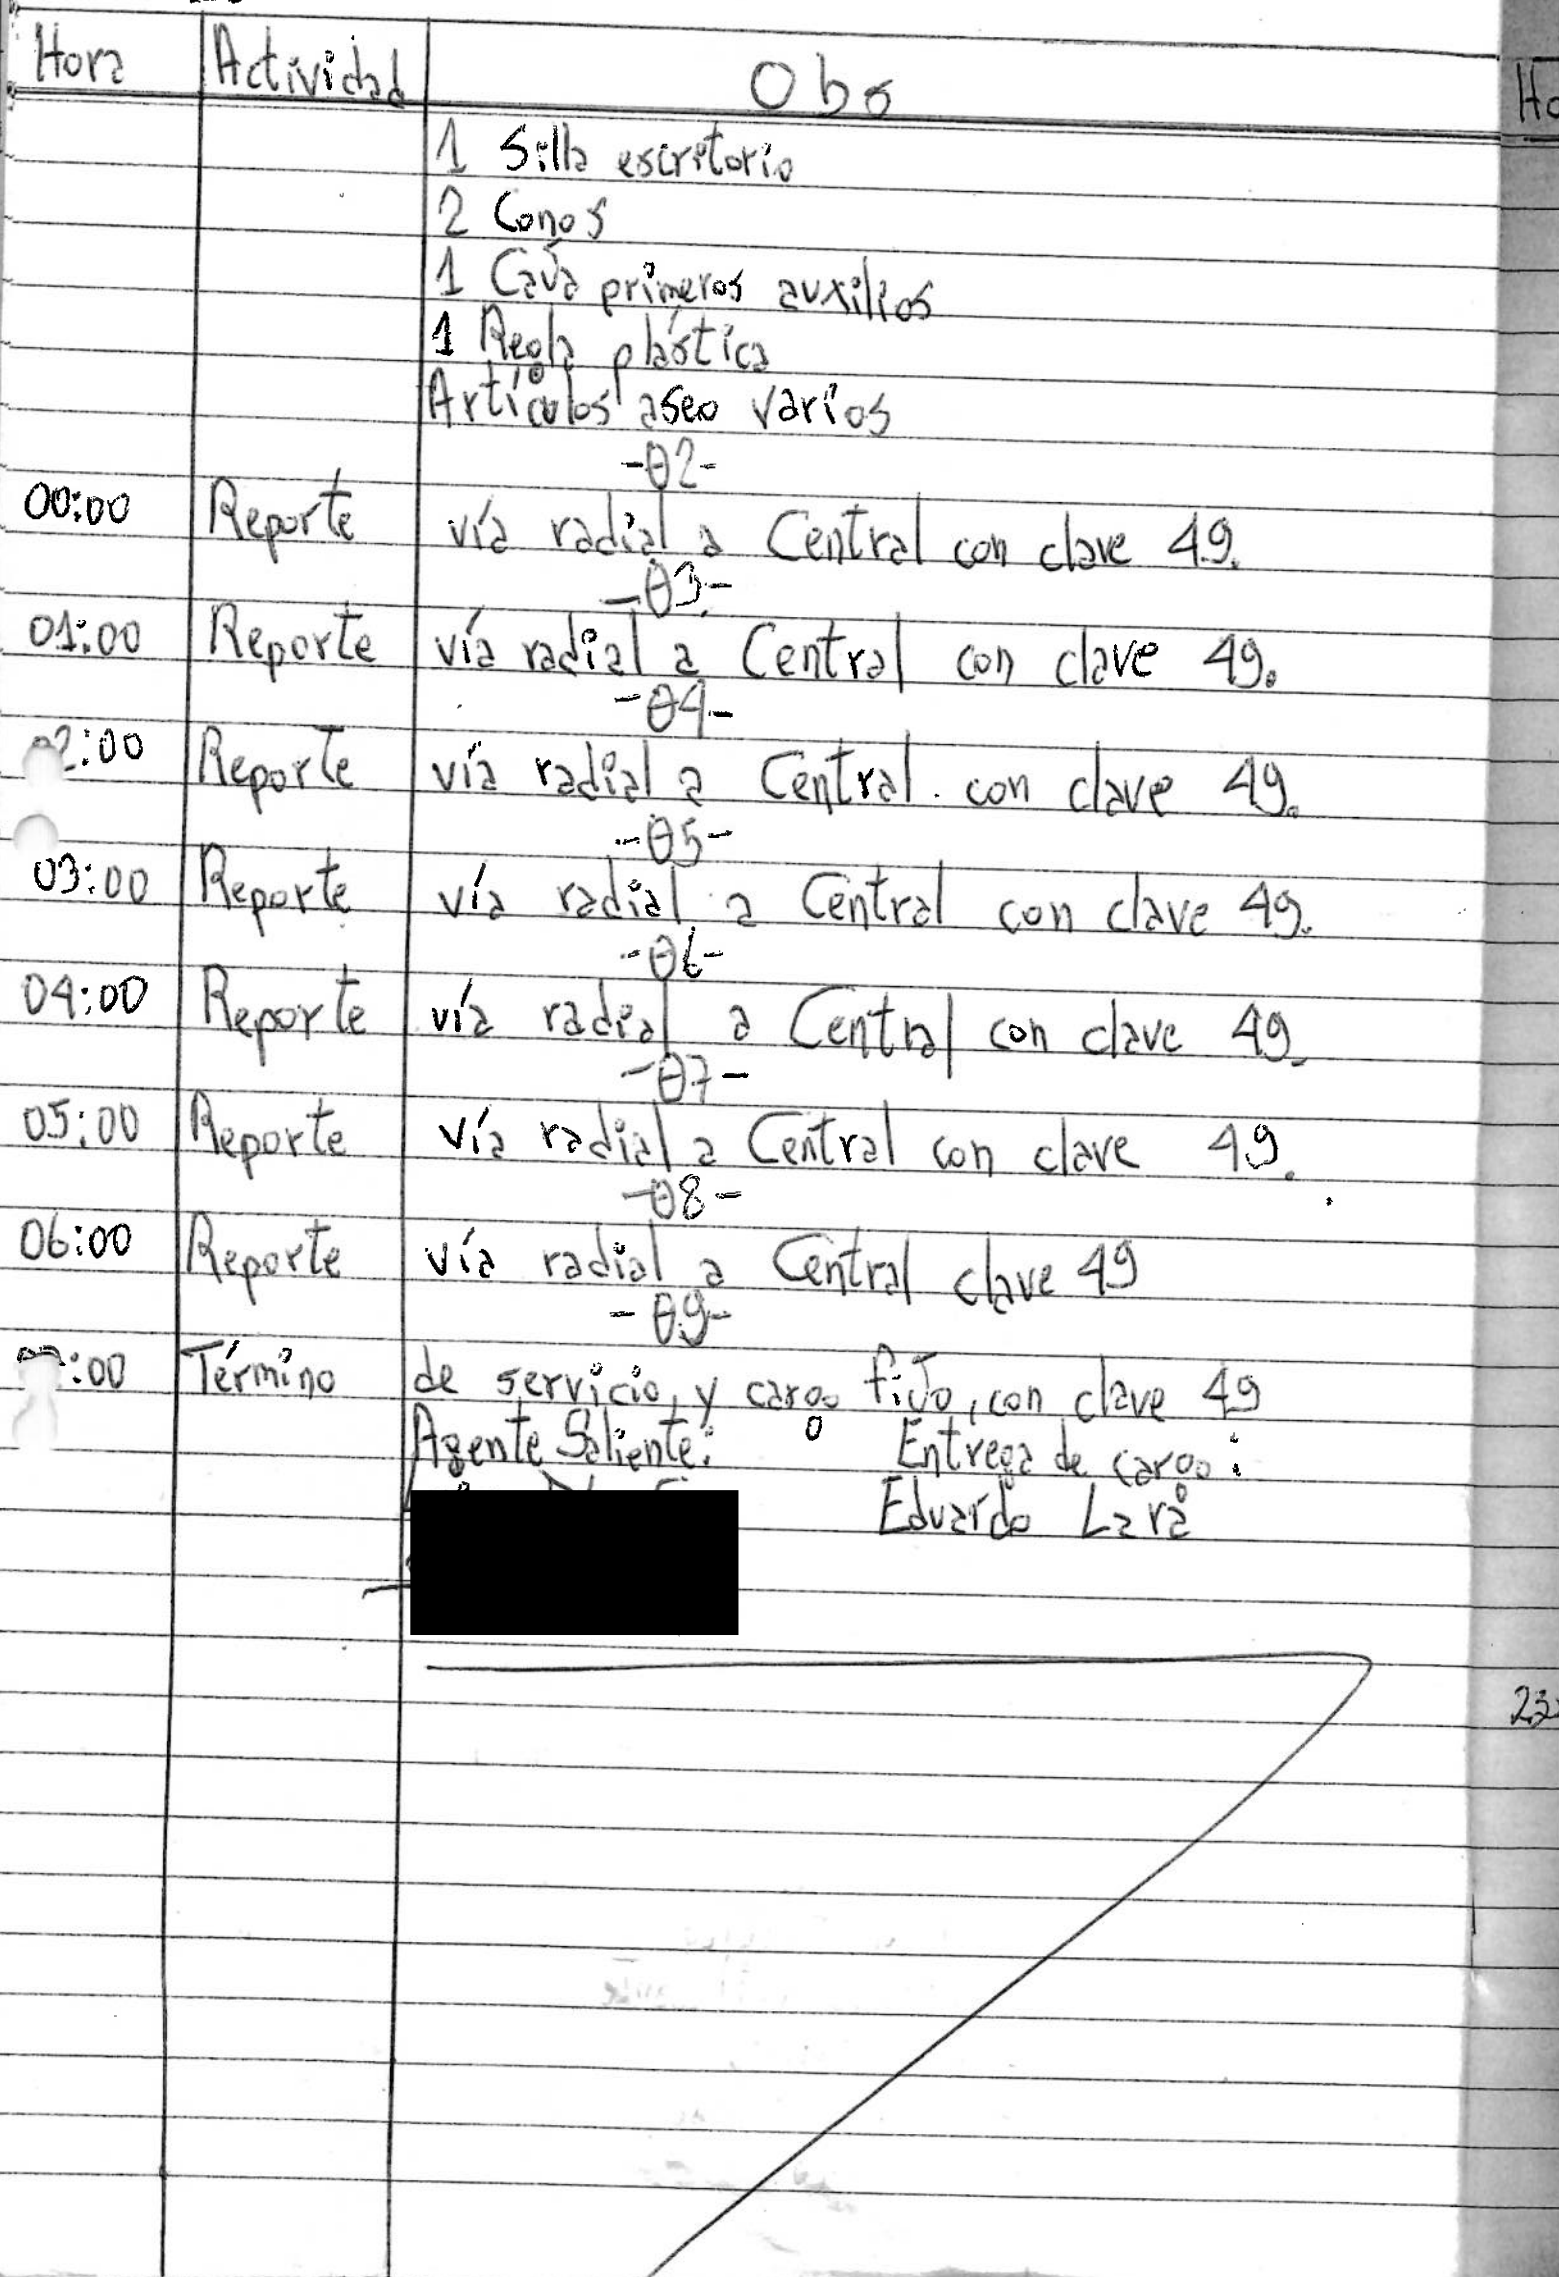 Hora Actividad Obs
1 Silla escritorio
2 Conos
1 Caja primeros auxilios
1 Regla plástica
Artículos aseo varios
-02-
00:00 Reporte vía radial a Central con clave 49.
-03-
01:00 Reporte vía radial a Central con clave 49.
-04-
2:00 Reporte vía radial a Central con clave 49.
-05-
03:00 Reporte vía radial a Central con clave 49.
-06-
04:00 Reporte vía radial a Central con clave 49.
-07-
05:00 Reporte vía radial a Central con clave 49.
-08-
06:00 Reporte vía radial a Central clave 49
-09-
:00 Término de servicio, y cargo fijo, con clave 49
Agente Saliente: Entrega de cargo:
Eduardo Lara
Ho
23: